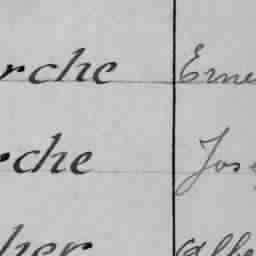 rche Erne
rche Jos
her Albe